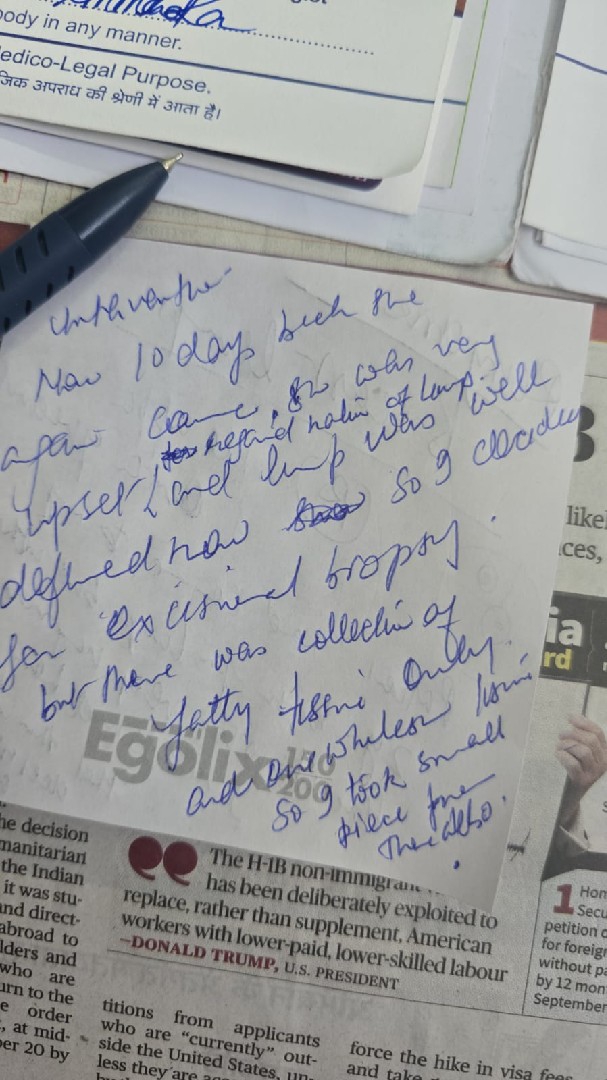 body in any manner.
edico-Legal Purpose.
जिक अपराध की श्रेणी में आता है।
Now 10 days back she
again came, she was very
upset regard natir of lump
and lump was well
defined now so I decided
for excisional biopsy.
but there was collectin of
fatty tissue only.
and one whitish tissue
so I took small
piece from
there also.
Egolix 150
200
he decision
manitarian
the Indian
it was stu-
and direct-
abroad to
lders and
who are
urn to the
e order
, at mid-
ber 20 by
The H-1B non-immigrant
has been deliberately exploited to
replace, rather than supplement, American
workers with lower-paid, lower-skilled labour
—DONALD TRUMP, U.S. PRESIDENT
titions from applicants
who are “currently” out-
side the United States,
less they are
force the hike in visa fees
and take
like
ces,
ia
rd
1 Hom
Secu
petition
for foreig
without pa
by 12 mon
September